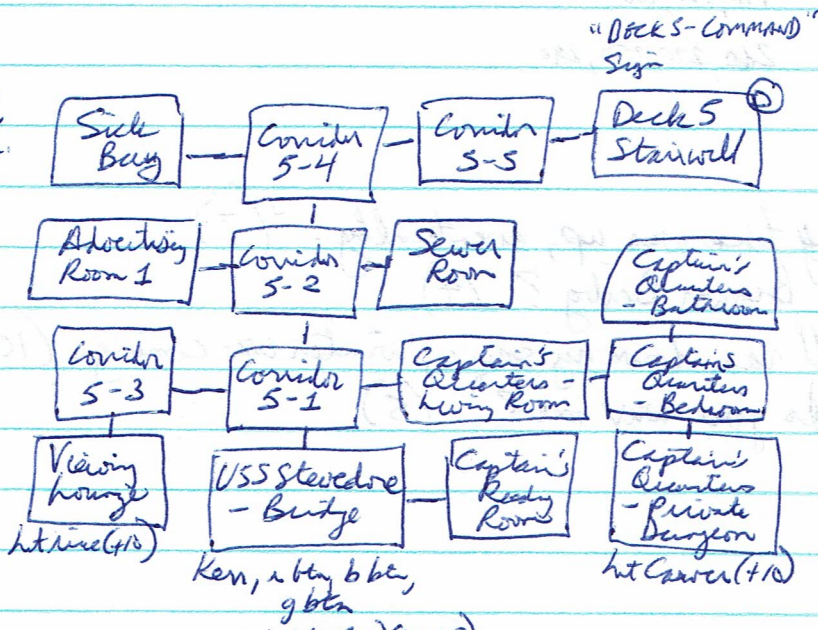 "DECK 5-COMMAND"
Sign
Sick
Bay
Corridor
5-4
Corridor
5-5
D
Deck 5
Stairwell
Advertising
Room 1
Corridor
5-2
Sewer
Room
Captain's
Quarters
- Bathroom
Corridor
5-3
Corridor
5-1
Captain's
Quarters -
Living Room
Captain's
Quarters
- Bedroom
Viewing
Lounge
USS Stevedore
- Bridge
Captain's
Ready
Room
Captain's
Quarters
- Private
Dungeon
(+10)
Carver (+10)
btn, b btn,
g btn